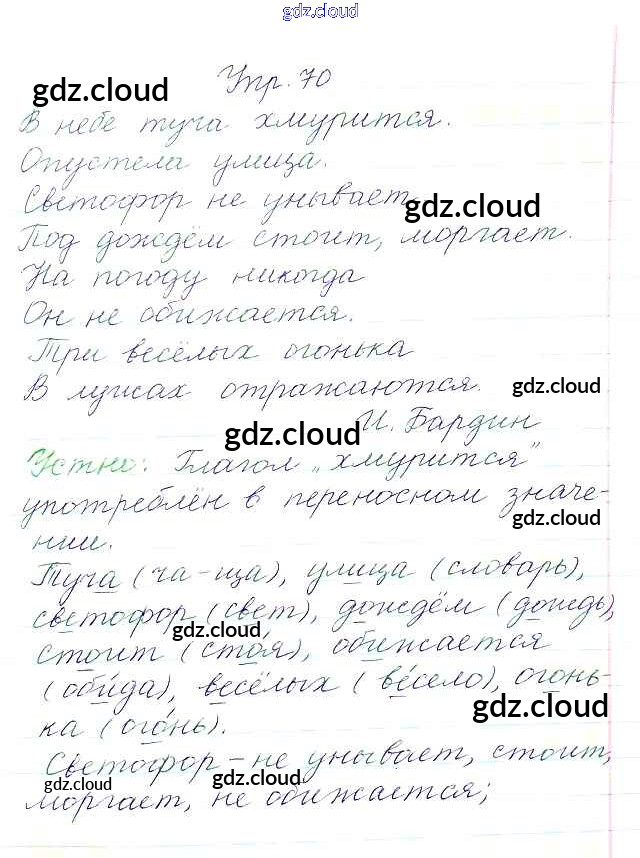 gdz.cloud
Упр. 70
gdz.cloud
В небе туча хмурится.
Опустела улица.
Светофор не унывает,
gdz.cloud
Под дождём стоит, моргает.
На погоду никогда
Он не обижается.
Три весёлых огонька
В лужах отражаются.
gdz.cloud
И. Бардин
gdz.cloud
Устно: Глагол „хмурится"
употреблён в переносном значе-
gdz.cloud
нии.
Туча (ча-ща), улица (словарь),
светофор (свет), дождём (дождь),
gdz.cloud
стоит (сто́я), обижается
(оби́да), весёлых (ве́село), огонь-
gdz.cloud
ка (ого́нь).
Светофор - не унывает, стоит,
gdz.cloud
gdz.cloud
моргает, не обижается;